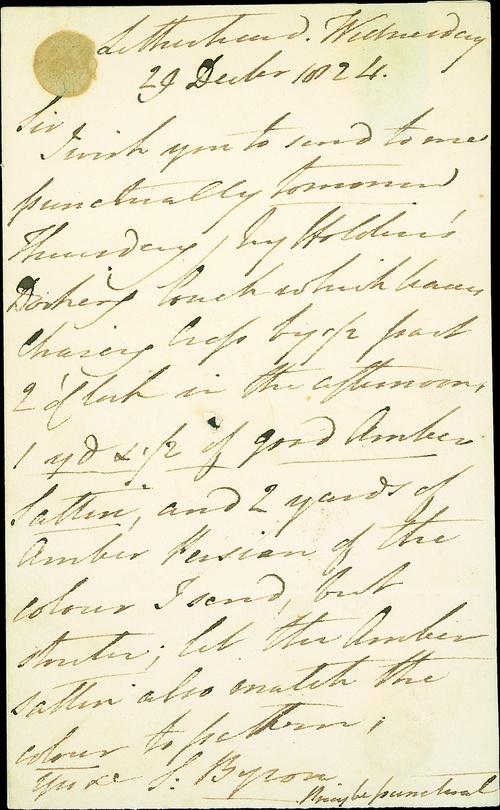 Letherhead. Wednesday
29 Decber 1824.
Sir
I wish you to send to me
punctually tomorrow
Thursday, by Holden's
Dorking Coach which leaves
Charing Cross by 1/2 past
2 o'Clock in the afternoon,
1 yd & 1/2 of good Amber
Sattin, and 2 yards of
Amber Persian of the
colour I send, but
stouter; let the Amber
sattin also match the
colour to pattern;
Yrs &c S. Byron
Pray be punctual